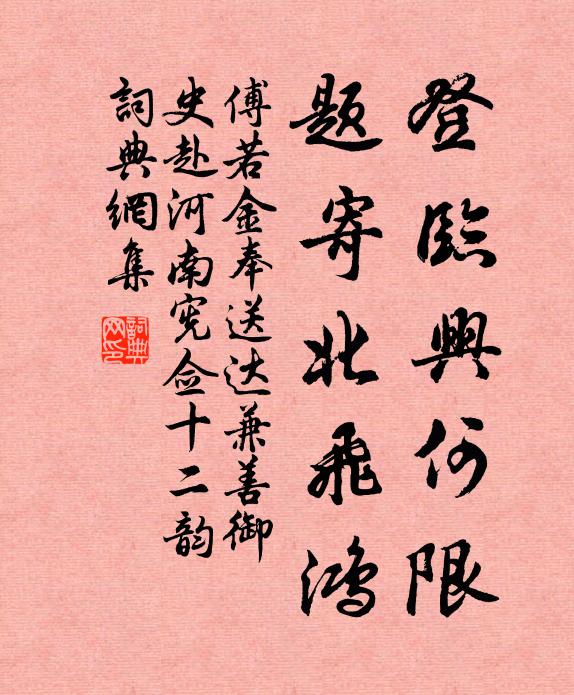 登臨興何限
题寄北飛鴻
傅若金奉送达兼善御
史赴河南宪佥十二韵
詞典網集
詞典
网印